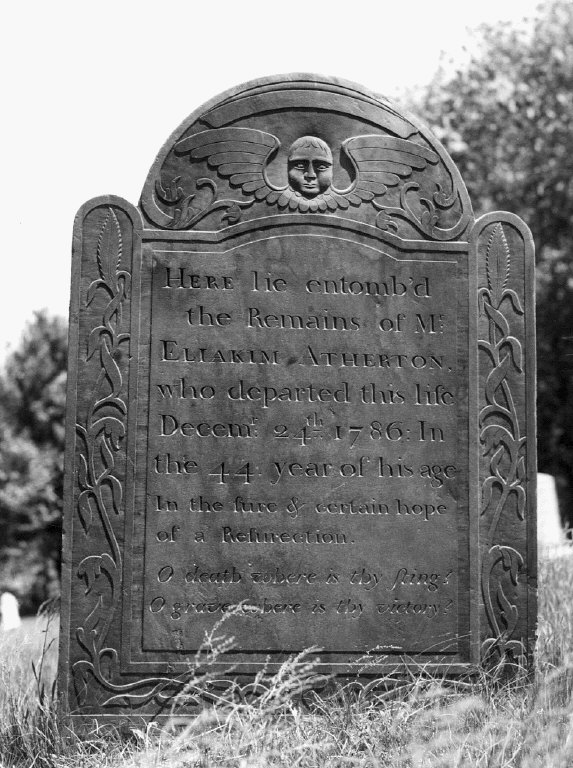 HERE lie entomb'd
the Remains of Mr.
ELIAKIM ATHERTON,
who departed this life
Decemr. 24th. 1786: In
the 44. year of his age
In the ſure & certain hope
of a Reſurection.
O death where is thy ſting?
O grave where is thy victory?